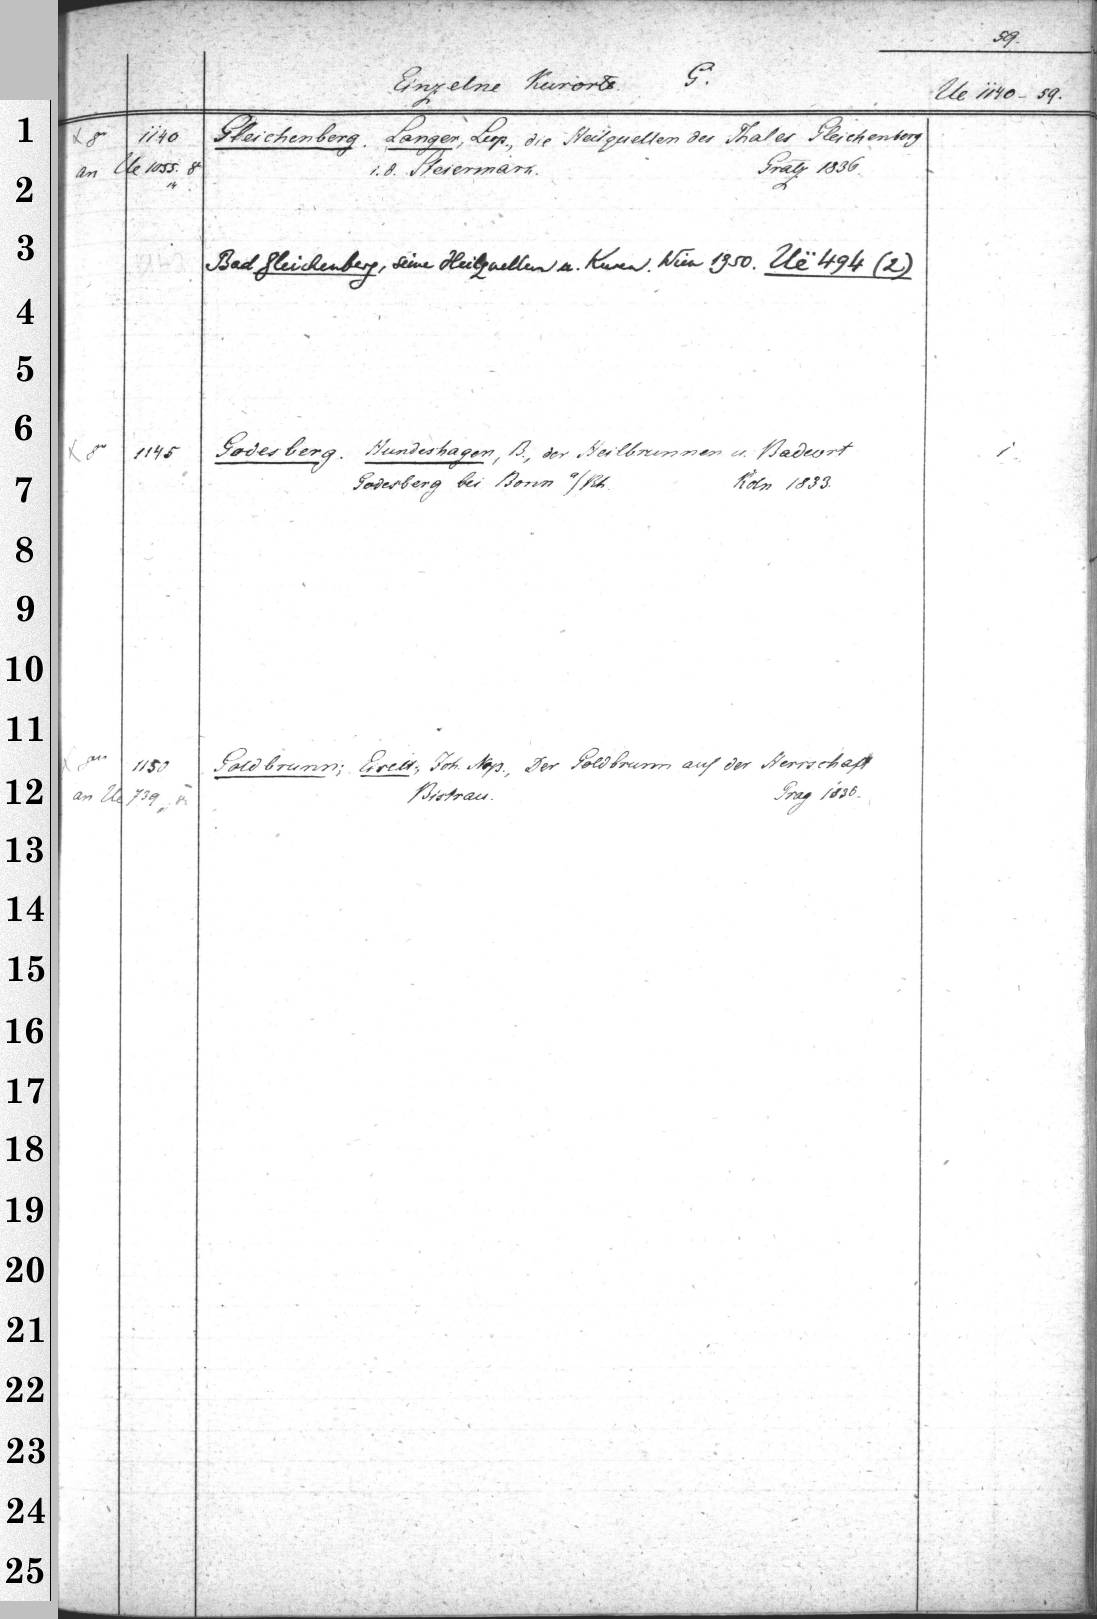 59.
Einzelne Kurorte. G.
Ue 1140 - 59.
1
X 8° 1140 Gleichenberg. Langer, Leop., die Heilquellen des Thales Gleichenberg
an Ue 1055. 8°
2
i. d. Steiermark. Gratz 1836.
3
Bad Gleichenberg, seine Heilquellen u. Kuren. Wien 1950. Uë 494 (2)
4
5
6
X 8° 1145 Godesberg. Hundeshagen, B., der Heilbrunnen u. Badeort 1.
7
Godesberg bei Bonn a/Rh. Köln 1833.
8
9
10
11
1150 Goldbrunn; Eiselt, Joh. Nep., Der Goldbrunn auf der Herrschaft
12
an Ue 739 Bistrau. Prag 1836.
13
14
15
16
17
18
19
20
21
22
23
24
25